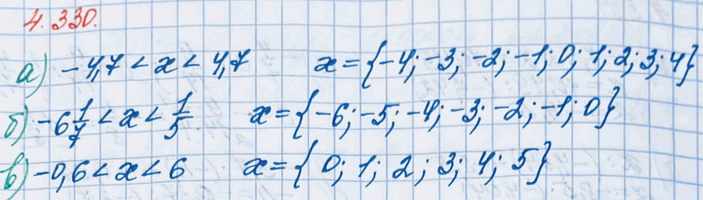 4.330.
а) -4,7 < x < 4,7 x = {-4; -3; -2; -1; 0; 1; 2; 3; 4}
б) -6 1/7 < x < 1/5 x = {-6; -5; -4; -3; -2; -1; 0}
в) -0,6 < x < 6 x = { 0; 1; 2; 3; 4; 5}